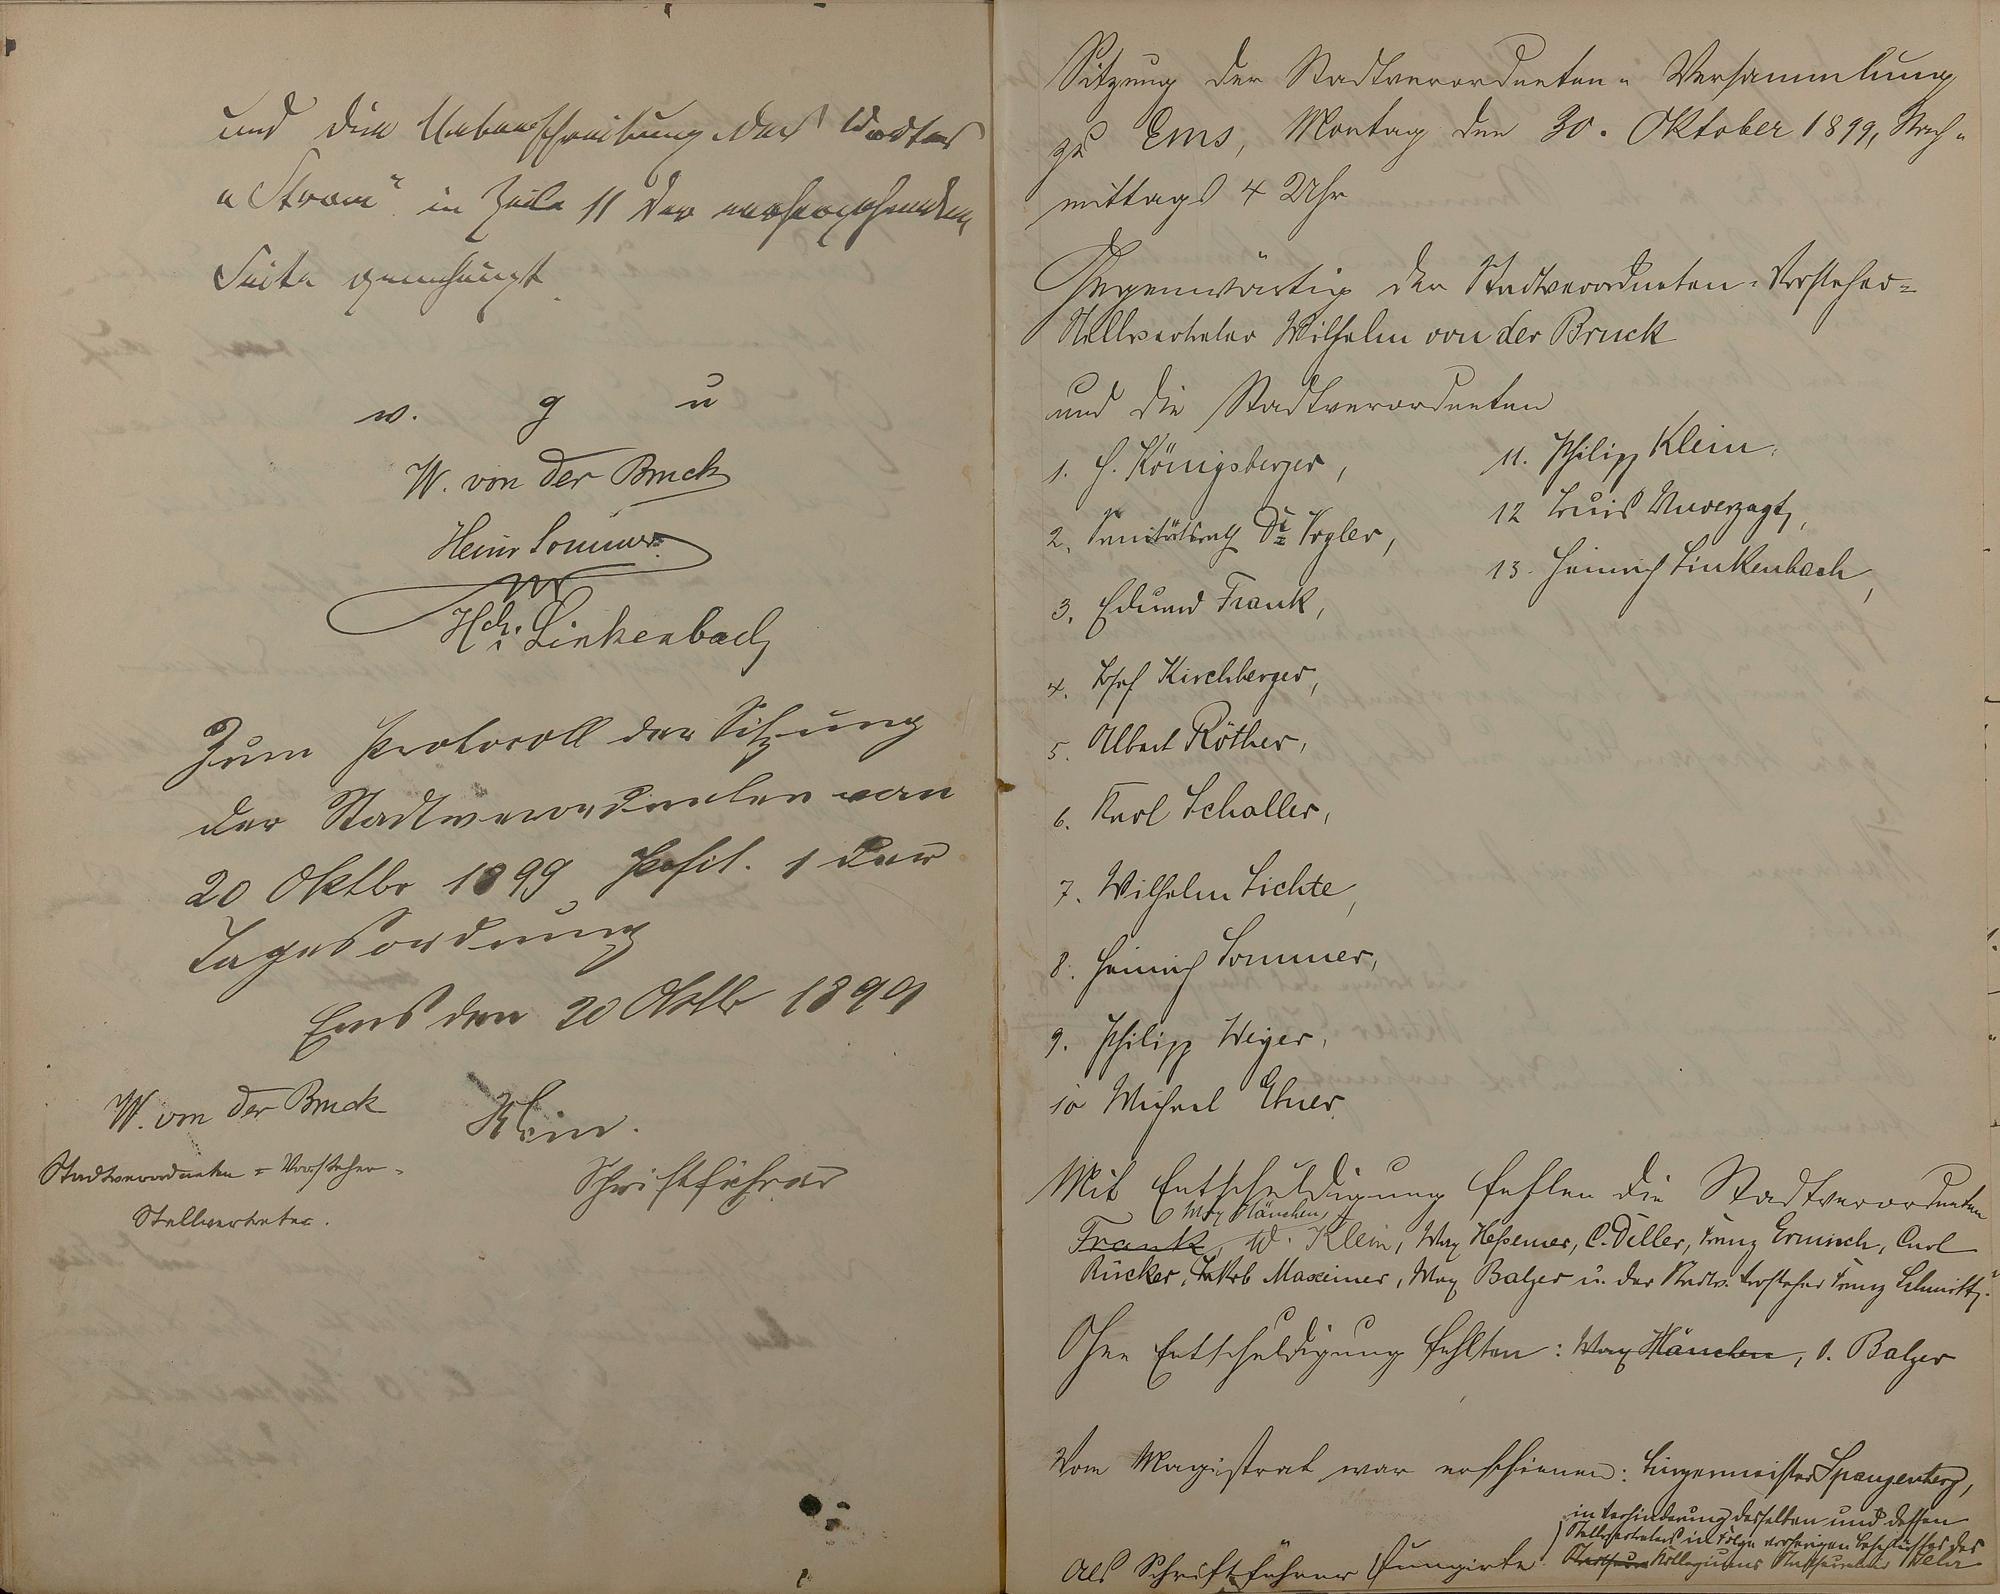 und die Ueberschreibung des Wortes
"Strom" in Zeile 11 der vorhergehenden
Seite genehmigt.
v. g u
W. von der Bruck
Heinr Sommer
Hch. Linkenbach
Zum Protocoll der Sitzung
der Stadtverordneten vom
20 Oktbr 1899 Posit. 1 der
Tagesordnung
Ems den 20 Oktb 1899
W. von der Bruck
Klein.
Stadtverordneten-Vorsteher-
Schriftführer
Stellvertreter.
Sitzung der Stadtverordneten-Versammlung
zu Ems, Montag den 30. Oktober 1899, Nach-
mittags 4 Uhr
Gegenwärtig der Stadtverordneten-Vorsteher-
Stellvertreter Wilhelm von der Bruck
und die Stadtverordneten
1. H. Königsberger,
2. Sanitätsrath Dr Vogler,
3. Eduard Frank,
4. Josef Kirchberger,
5. Albert Röther,
6. Karl Schaller,
7. Wilhelm Lichte,
8. Heinrich Sommer,
9. Philipp Weyer,
10 Michael Ebner
11. Philipp Klein,
12 Louis Unverzagt,
13. Heinrich Linkenbach,
Mit Entschuldigung fehlen die Stadtverordneten
Max Hänchen,
Frank, W. Klein, Max Heßemer, C. Diller, Franz Ermisch, Carl
Rücker, Jakob Maxeiner, Max Balzer u. der Stadtv. Vorsteher Franz Schmitt.
Ohne Entschuldigung fehlten: Max Hänchen, O. Balzer
Vom Magistrat war erschienen: Bürgermeister Spangenberg,
in Verhinderung desselben und dessen
Stellvertreters in Folge vorherigen Beschlusses des
Als Schriftführer fungirte Kollegiums